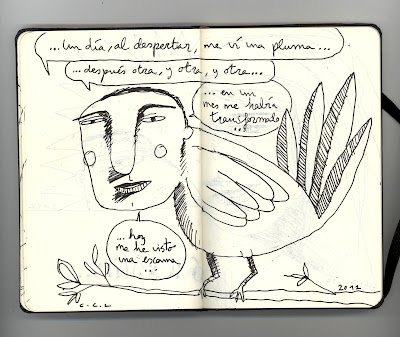 ...un día, al despertar, me vi una pluma...
...después otra, y otra, y otra...
... en un
mes me había
transformado
...
... hoy
me he visto
una escama
...
C.C.L
2012